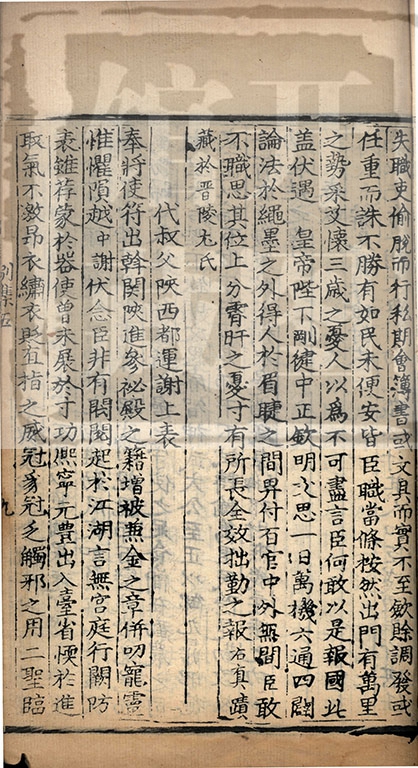 失職吏偷脫而行私期會簿書或文具而實不至斂賒調發或
任重而誅不勝有如民未便安皆臣職當條按然出門有萬里
之勢采艾懷三歲之憂人以為不可盡言臣何敢以是報國此
盖伏遇 皇帝陛下剛健中正欽明文思一日萬機六通四闢
論法於繩墨之外得人於眉睫之間畀付右官中外無間臣敢
不職思其位上分霄旰之憂寸有所長全效拙勤之報右真蹟
藏於晋陵尤氏
代叔父陝西都運謝上表
奉將使符出幹関陝進參祕殿之籍增被黹金之章併叨寵靈
惟懼隕越中謝伏念臣非有閥閱起於江湖言無宫庭行闕防
表雖荐蒙於器使曾未展於寸功熈寧元豊出入臺省愞於進
取氣不激昂衣繡衣與有指之威冠豸冠乏觸邪之用二聖臨
別集五
九